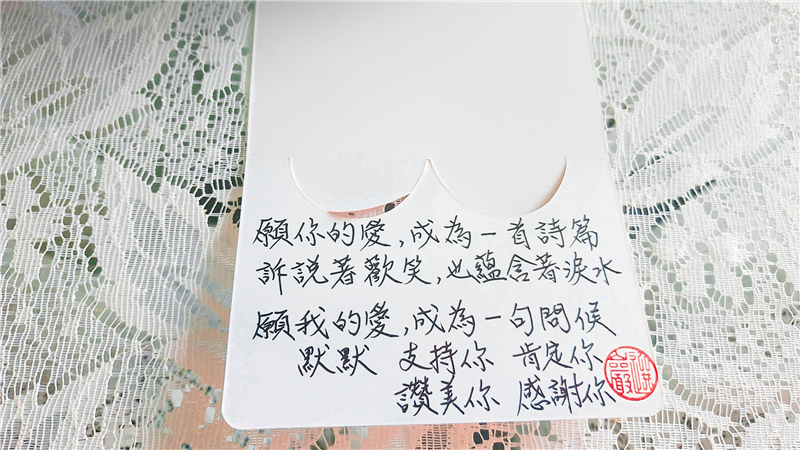 願你的愛,成為一首詩篇
訴說著歡笑,也蘊含著淚水
願我的愛,成為一句問候
默默 支持你 肯定你
讚美你 感謝你
嚴選